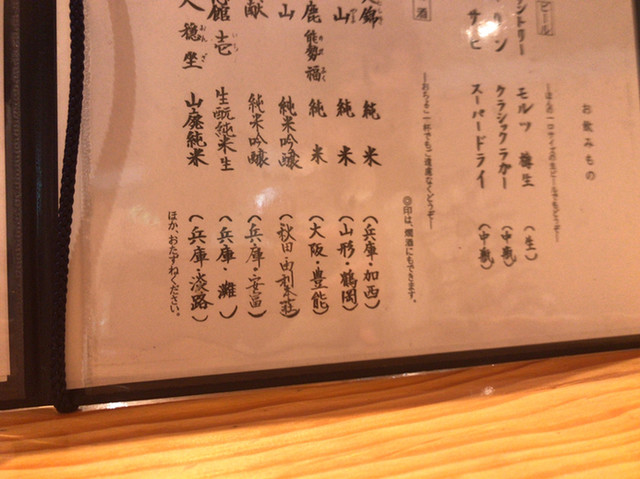 お飲みもの
ビール
ントリー モルツ 樽生 (生)
リン クラシックラガー (中瓶)
サヒ スーパードライ (中瓶)
酒
―おちょこ一杯でもご遠慮なくどうぞ―
◎印は、燗酒にもできます。
錦 純米 (兵庫・加西)
山 純米 (山形・鶴岡)
鹿 能勢福 純米 (大阪・豊能)
山 純米吟醸 (秋田・由利本荘)
献 純米吟醸 (兵庫・安富)
館 壱 生酛純米生 (兵庫・灘)
穏坐 山廃純米 (兵庫・淡路)
ほか、おたずねください。